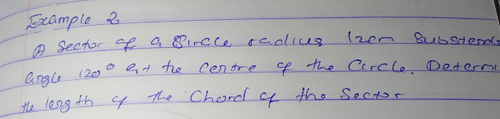 Example 2
A Sector of a Circle radius 12cm Substends
angle 120° at the centre of the Circle. Determi
the length of the Chord of the Sector